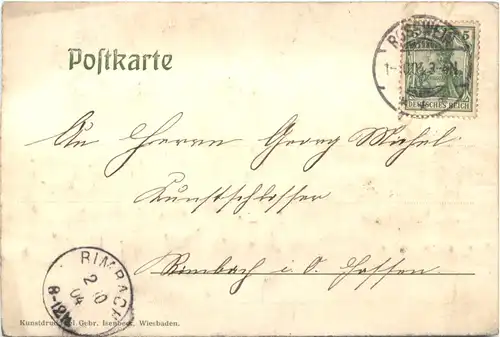 Postkarte
ROSSWEIN
5
DEUTSCHES REICH
An Herrn Georg Michel
Kunstschlosser
Rimbach i. O. Hessen
RIMBACH
2 10
04
8-12V
Kunstdruck Gebr. Isenbeck, Wiesbaden.